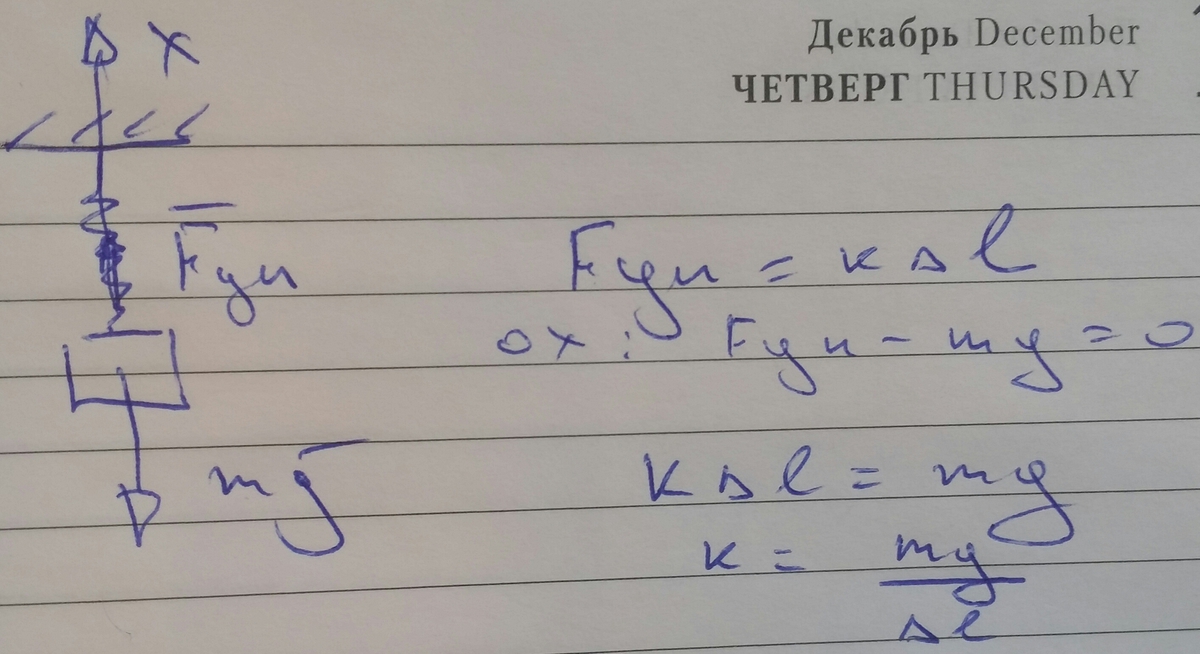 Декабрь December
ЧЕТВЕРГ THURSDAY
x
Fуп
Fуп = кΔl
ox: Fуп - mg = 0
mg
кΔl = mg
к = mg / Δl